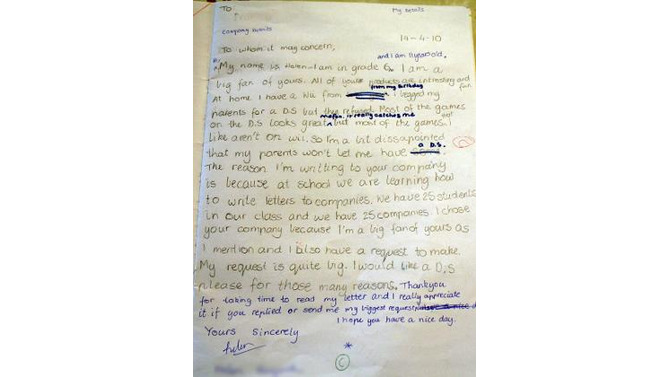 To
My Details
Company Details
14-4-10
To whom it may concern,
and I am 11 years old,
My name is Helen - I am in grade 6. I am a
big fan of yours. All of your products are intresting and fun
from my birthday
At home I have a Wii from I begged my
parents for a D.S but they refused. Most of the games
it really catches me
on the D.S looks great but most of the games I
like aren't on wii. So I'm a bit dissapointed
a D.S.
that my parents won't let me have
The reason I'm writting to your company
is because at school we are learning how
to write letters to companies. We have 25 students
in our class and we have 25 companies. I chose
your company because I'm a big fan of yours as
I mention and I also have a request to make.
My request is quite big. I would like a D.S
please for those many reasons. Thankyou
for taking time to read my letter and I really appreciate
it if you replied or send me my biggest request
I hope you have a nice day.
Yours Sincerely
*
C